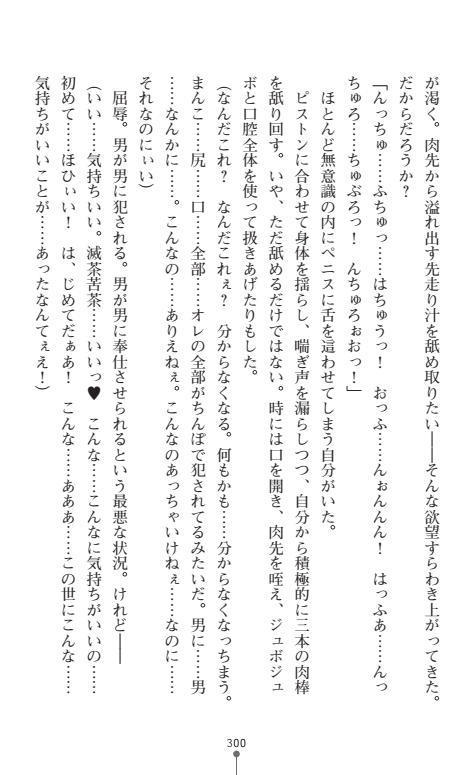 が渇く。肉先から溢れ出す先走り汁を舐め取りたい――そんな欲望すらわき上がってきた。
だからだろうか？
「んっちゅ……ふちゅっ……はちゅうっ！　おっふ……んぉんんん！　はっふあ……んっ
ちゅろ……ちゅぶろっ！　んちゅろぉおっ！」
　ほとんど無意識の内にペニスに舌を這わせてしまう自分がいた。
　ピストンに合わせて身体を揺らし、喘ぎ声を漏らしつつ、自分から積極的に三本の肉棒
を舐り回す。いや、ただ舐めるだけではない。時には口を開き、肉先を咥え、ジュボジュ
ボと口腔全体を使って扱きあげたりもした。
（なんだこれ？　なんだこれぇ？　分からなくなる。何もかも……分からなくなっちまう。
まんこ……尻……口……全部……オレの全部がちんぽで犯されてるみたいだ。男に……男
……なんかに……。こんなの……ありえねぇ。こんなのあっちゃいけねぇ……なのに……
それなのにぃい）
　屈辱。男が男に犯される。男が男に奉仕させられるという最悪な状況。けれど――
（いい……気持ちいい。滅茶苦茶……いいっ♥　こんな……こんなに気持ちがいいの……
初めて……ほひぃい！　は、じめてだぁあ！　こんな……あああ……この世にこんな……
気持ちがいいことが……あったなんてぇえ！）
300